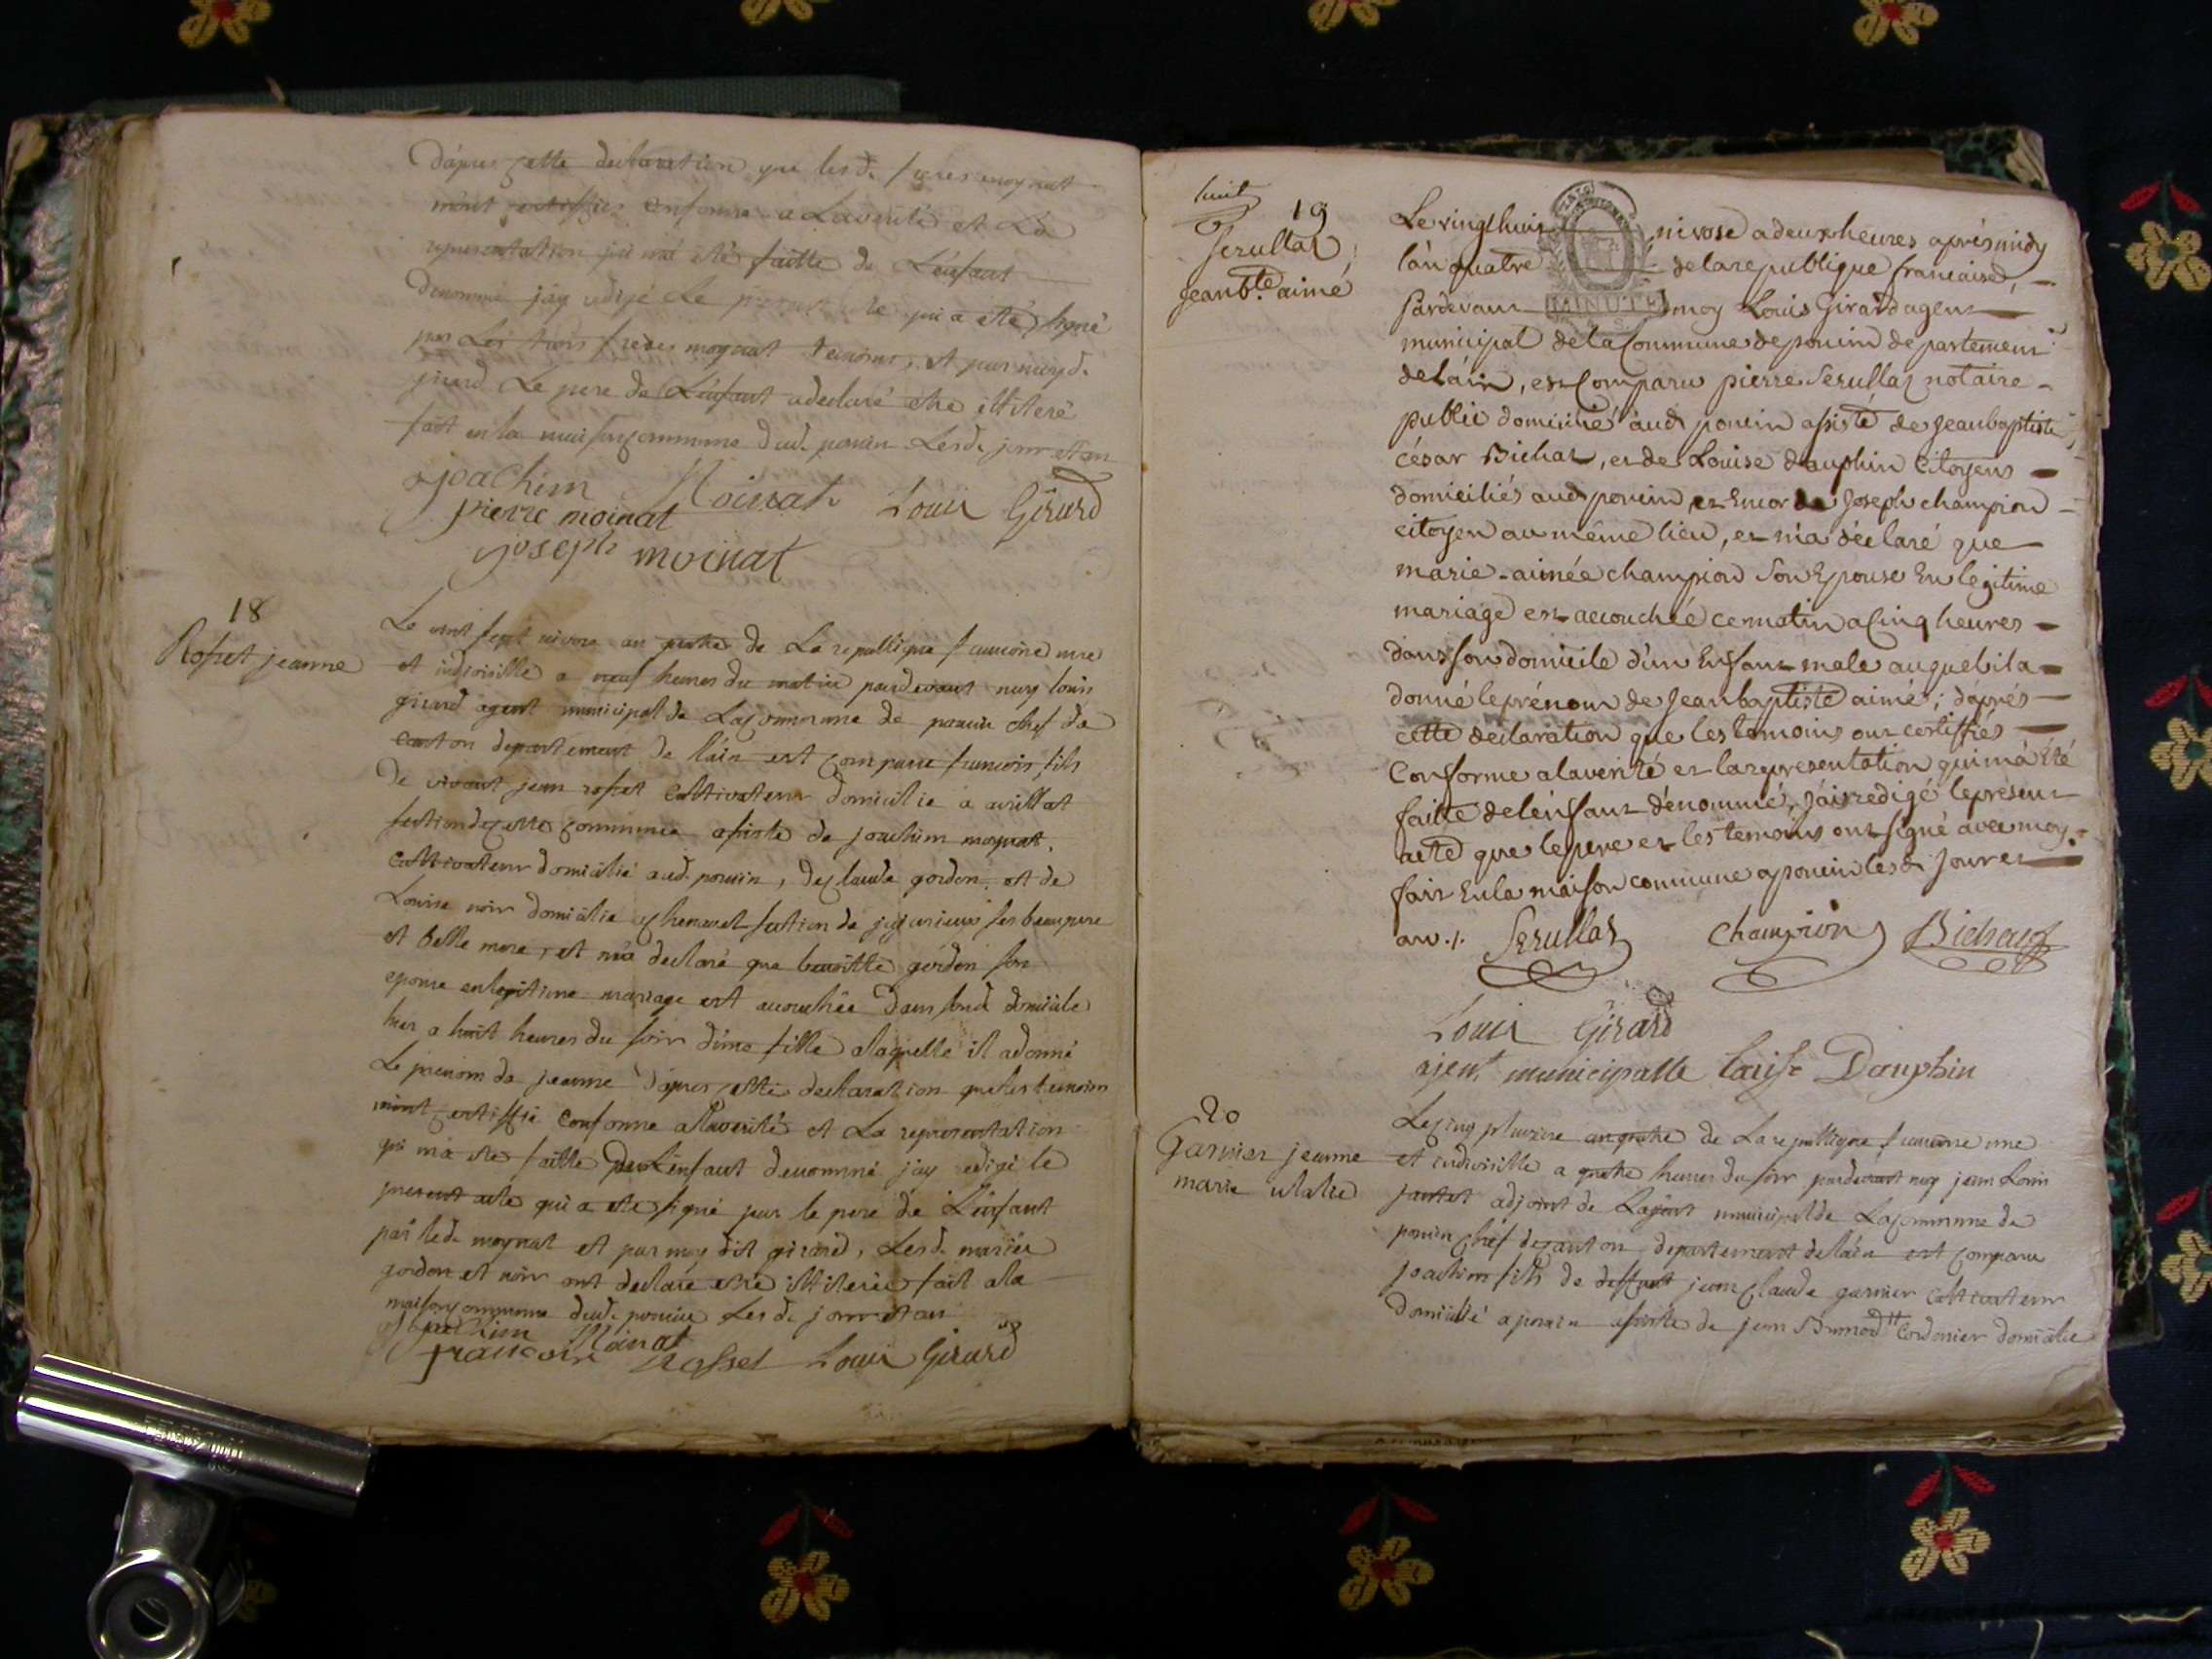 d'apres cette declaration que lesd. freres moynat
m'ont certiffiés conforme a la verité et La
representation qui m'a eté faitte de L'enfant
denommé j'ay redigé Le present acte qui a eté signé
par Les trois freres moynat temoins, et par moyd.
girard Le pere de L'enfant a declaré etre illiteré
fait en la maison commune dud. poncin Lesd. jour et an
joachim Moinat Louis Girard
pierre moinat
joseph moinat
18
Rosset jeanne
Le vint sept nivose an quatre de La republique francoise une
et indivisible a neuf heures du matin pardevant moy louis
girard agent municipal de La commune de poncin chef de
canton departement de l'ain est comparu francois fils
de vivant jean rosset Cultivateur domicilié a avrillat
section de cette commune assisté de joachim moynat,
Cultivateur domicilié aud. poncin, de claude gordon, et de
Louise noir domicilié a chenavel section de jujurieux ses beau pere
et belle mere, et m'a declaré que benoitte gordon son
epouse en legitime mariage est accouchée dans sond. domicile
hier a huit heures du soir d'une fille a laquelle il a donné
Le prenom de jeanne d'apres cette declaration que les temoins
m'ont certiffié conforme a la verité et La representation
qui m'a eté faitte de L'enfant denommé j'ay redigé le
present acte qui a eté signé par le pere de L'enfant
par led. moynat et par moy dit girard, Lesd. mariés
gordon et noir ont declaré etre illiterés fait a la
maison commune dud. poncin Lesd. jour et an
joachim Moinat
francois Rosset Louis Girard
huit
19
Serullaz
Jean bte. aimé
Le vingt huit nivose a deux heures après midy
l'an quatre de la republique francaise,
pardevant MINUTE moy Louis Girard agent
municipal de la Commune de poncin departement
de l'ain, est Comparu pierre Serullaz notaire
public domicilié aud. poncin assisté de Jean baptiste
césar Bichat, et de Louise dauphin Citoyens
domiciliés aud. poncin et encor de Joseph champion
citoyen au même lieu, et m'a déclaré que
marie-aimée champion son Epouse En legitime
mariage est accouchée ce matin a Cinq heures
dans son domicile d'un Enfant male auquel il a
donné le prénom de Jean baptiste aimé; d'aprés
cette declaration que les temoins ont certiffiés
Conforme a la verité et la representation qui m'a Eté
faitte de l'enfant dénommé, J'ai redigé le present
acte que le pere et les temoins ont signé avec moy.
fait En la maison commune a poncin lesd. Jour et
an ./. Serullaz Champion Bichat
Louis Girard
ajent municipalle louise Dauphin
20
Garnier jeanne
marie
Le cinq pluviose an quatre de La republique francoise une
et indivisible a quatre heures du soir pardevant moy jean Louis
jantet adjoint de Lagent municipal de La commune de
poncin chef de canton departement de l'ain est comparu
joachim fils de deffunt jean claude garnier cultivateur
domicilié a poncin assisté de jean Cordonier domicilié